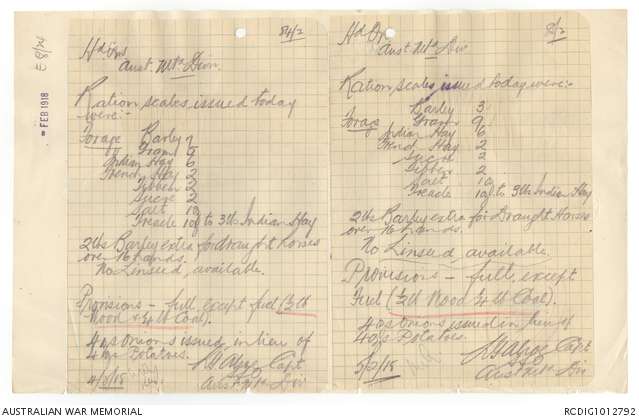 E 8/24
FEB 1918
84/2
Hd Qrs
Aust. Mtd Divn.
Ration scales issued today
were:-
Forage Barley
Gram 9
Indian Hay 6
Trench Hay 2
Tibben 2
Sucre 2
Salt 1 oz
Treacle 1 oz to 3 lb Indian Hay
2 lbs Barley extra for draught horses
over 16 hands.
No Linseed available.
Provisions - full except fuel (1½ lb
Wood & ¼ lb Coal).
4 ozs Onions issued in lieu of
4 ozs Potatoes.
Capt
4/2/18 Aust Mtd Div
Hd Qrs
Aust Mtd Div
Ration scales issued today were:-
Barley 3
Forage Gram 9
Indian Hay 6
Trench Hay 2
Sucre 2
Tibben 2
Salt 1 oz
Treacle 1 oz to 3 lb Indian Hay
2 lbs Barley extra for Draught Horses
over 16 hands.
No Linseed available
Provisions - full except
Fuel (½ lb Wood ¼ lb Coal).
4 ozs Onions issued in lieu of
4 ozs Potatoes.
Capt
5/2/18 Aust Mtd Div
AUSTRALIAN WAR MEMORIAL
RCDIG1012792